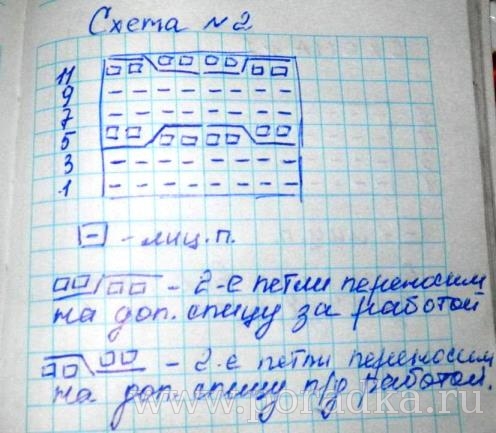 Схема №2
11
9 - - - - - - - -
7 - - - - - - - -
5
3 - - - - - - - -
1 - - - - - - - -
- - лиц. п.
- 2-е петли переносим
на доп. спицу за работой
- 2-е петли переносим
на доп. спицу п/д работой.
www.poradka.ru